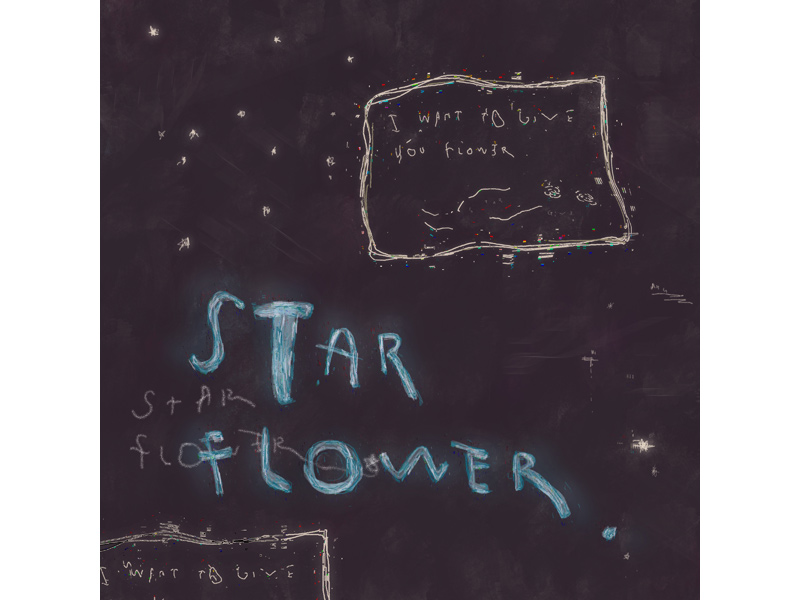 I WANT TO GIVE
YOU FLOWER
STAR
FLOWER.
STAR
FLOWER
I WANT TO GIVE